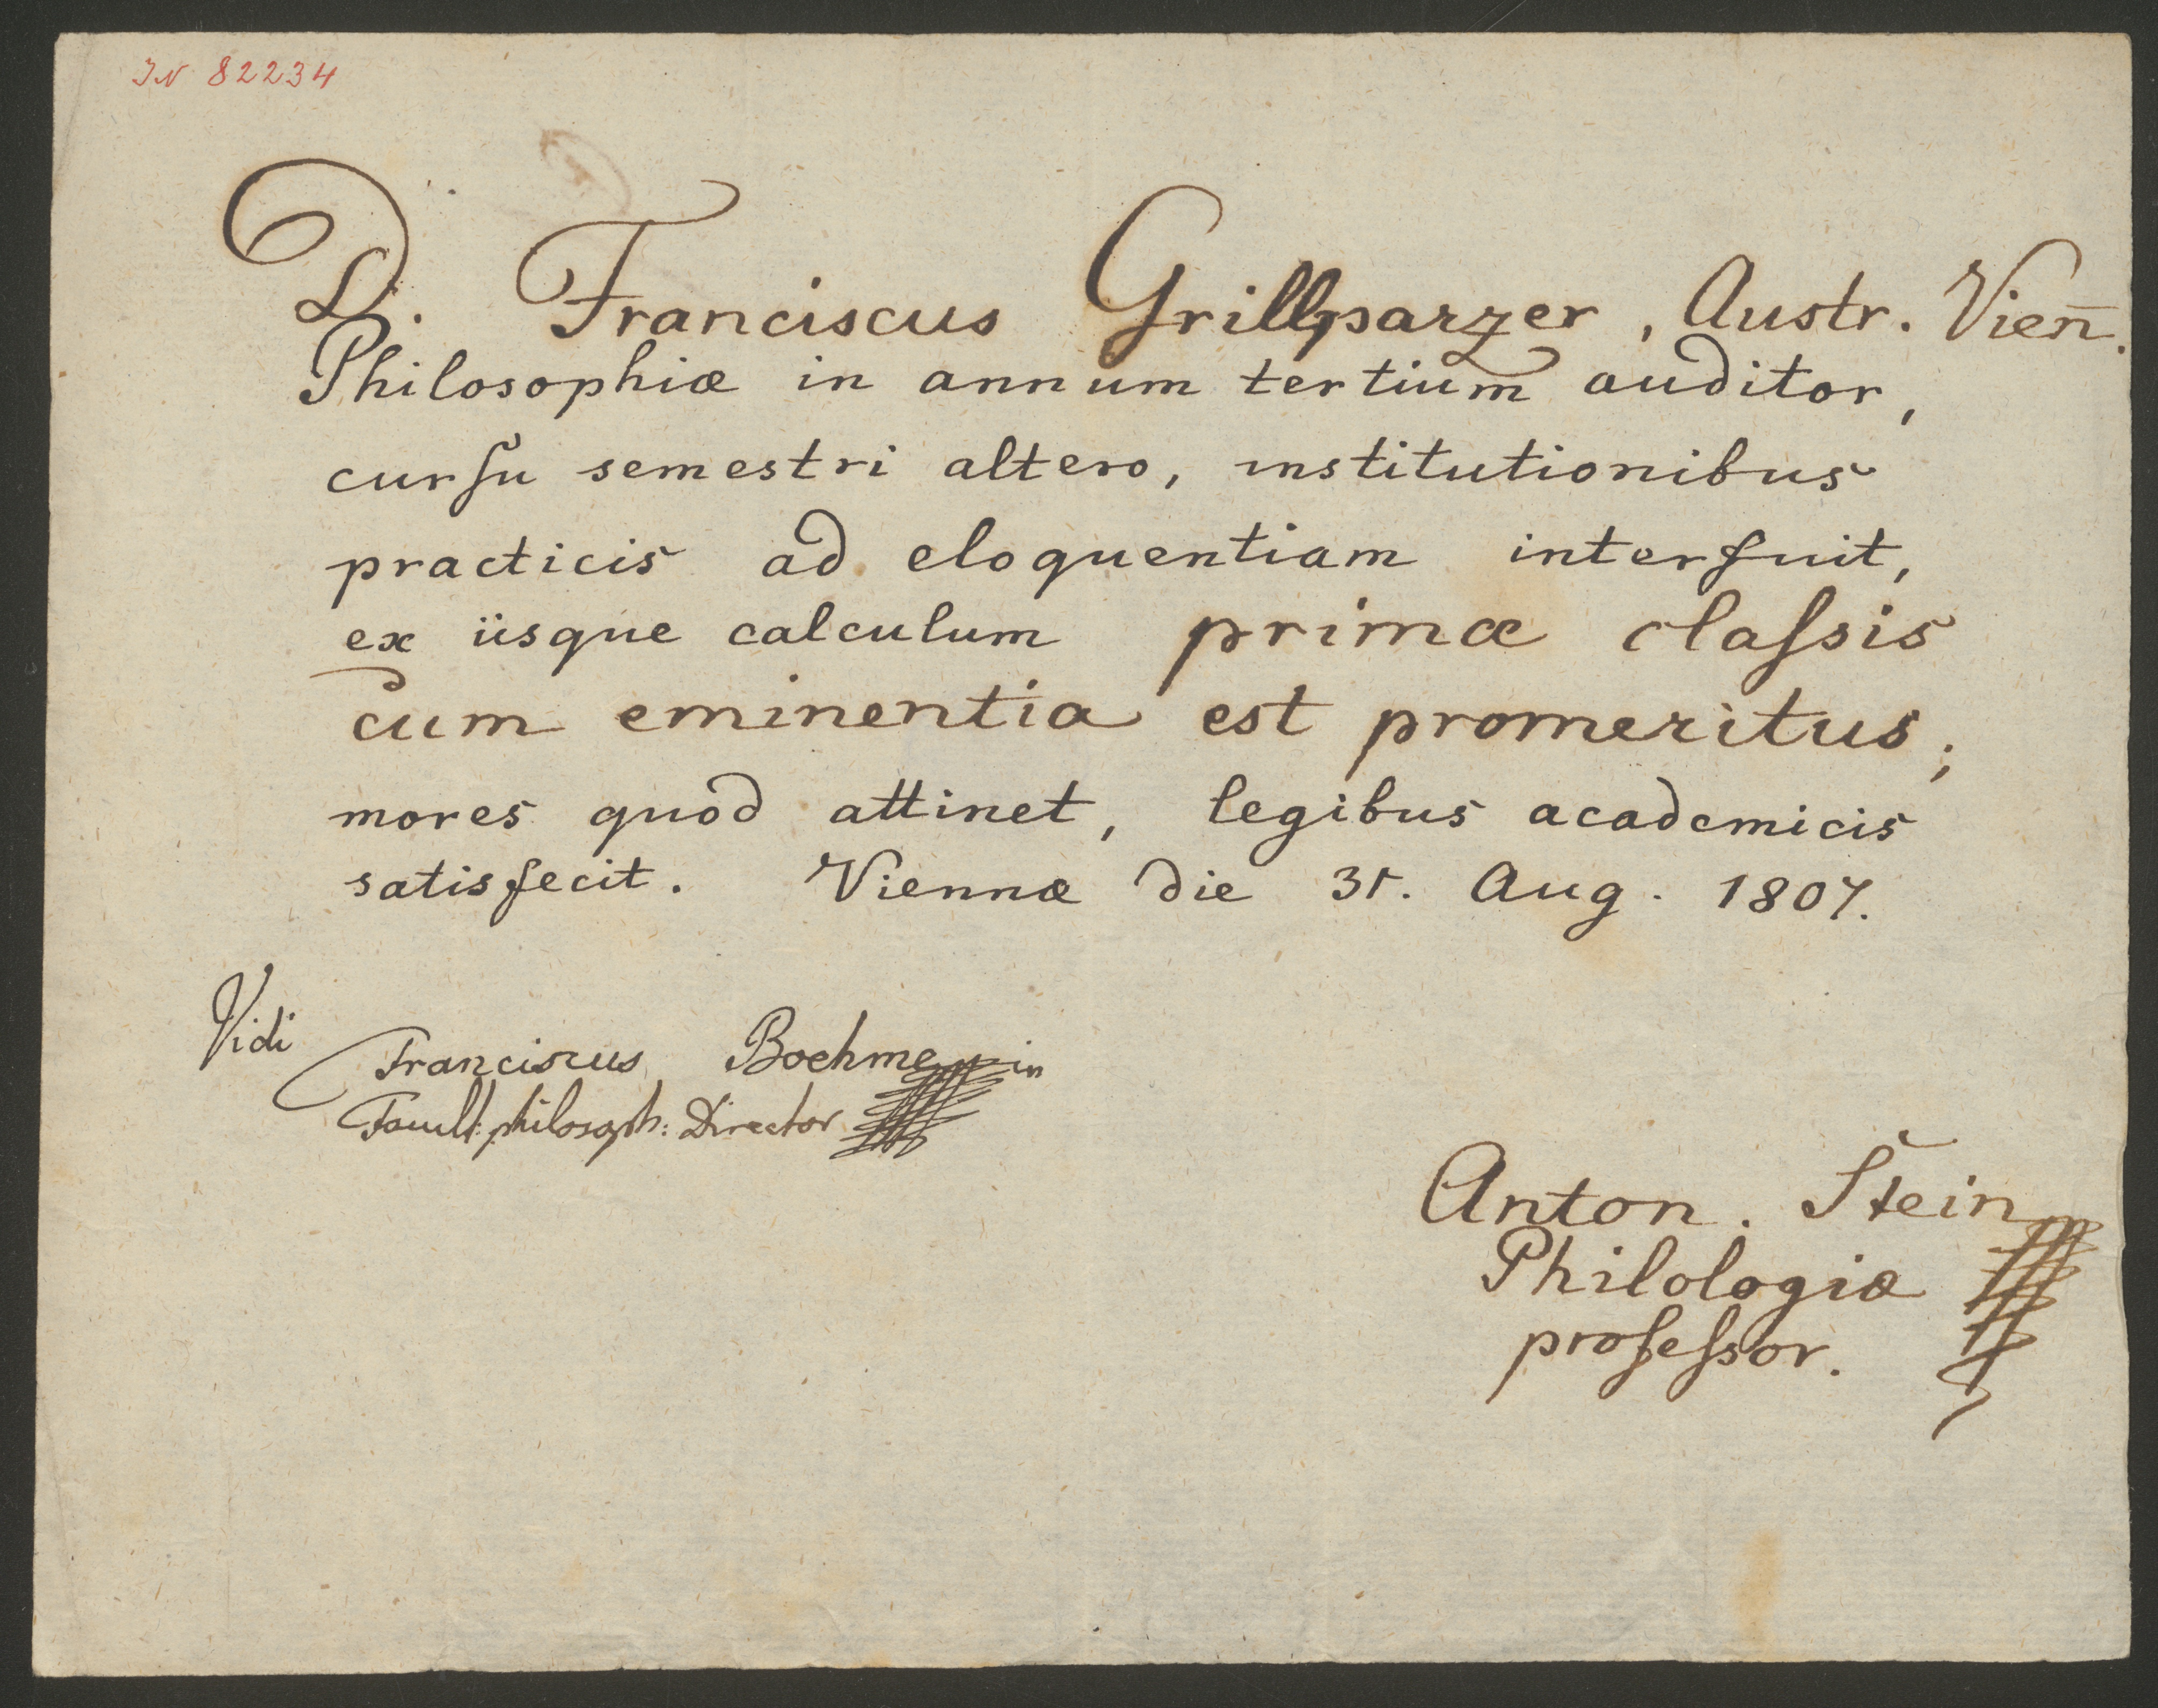 IN 82234
D. Franciscus Grillparzer, Austr. Vien̄.
Philosophiæ in annum tertium auditor,
curſu semestri altero, institutionibus
practicis ad eloquentiam interfuit,
ex iisque calculum primæ claſsis
cum eminentia est promeritus;
mores quod attinet, legibus academicis
satisfecit. Viennæ die 31. Aug. 1807.
Vidi
Franciscus Boehm
Facult: philosoph: Director
Anton. Stein
Philologiæ
profeſsor.